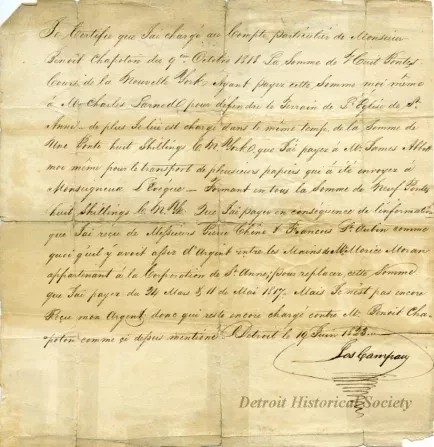 Je Certifie que J'ai chargé au Compte particulier de Monsieur
Benoit Chapoton du 9me Octobre 1818 La Somme de Huit Pondes
Cours de la Nouvelle York, Ayant payer cette Somme moi même
à Mr. Charles Larned pour defendre le Terrain de L'Eglise de Ste
Anne - de plus Je lui est chargé dans le même temp de la Somme de
Une Ponde huit Shillings C. N. York que J'ai payer à Mr. James Abbott
moi même pour le transport de plusieurs papiers qui a été envoyez à
Monseigneur L'Evèque - Formant en tous la Somme de Neuf Pondes
huit Shillings C. N. Yk. Que J'ai payer en consequence de l'information
que J'ai reçu de Messieurs Pierre Chene & Francois St. Aubin comme
quoi qu'il y avoit assez d'Argent entre les Mains de Mr Morice Moran
appartenant à la Corporation de Ste. Anne, pour replacer cette Somme
que J'ai payer du 24 Mars & 11 de Mai 1817 - Mais Je n'est pas encore
Reçu mon Argent, donc qui reste encore chargé contre Mr. Benoit Cha-
poton comme ci dessus mentionné Detroit le 19 Juin 1823
Jos Campau
Detroit Historical Society